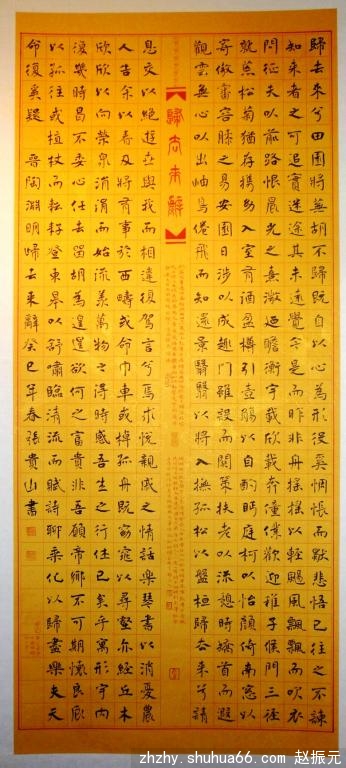 歸去來兮田園將蕪胡不歸既自以心為形役奚惆悵而獸悲悟已往之不諫
知來者之可追實迷途其未遠覺今是而昨非舟搖搖以輕颺風飄飄而吹衣
問征夫以前路恨晨光之熹微迺瞻衡宇載欣載奔僮僕歡迎稚子候門三徑
就荒松菊猶存携幼入室有酒盈樽引壺觴以自酌眄庭柯以怡顏倚南窗以
寄傲審容膝之易安園日涉以成趣門雖設而關策扶老以流憩時矯首而遐
觀雲無心以出岫鳥倦飛而知還景翳翳以將入撫孤松以盤桓歸去來兮請
歸去來辭
息交以絕遊世與我而相違復駕言兮焉求悅親戚之情話樂琴書以消憂農
人告余以春及將有事於西疇或命巾車或棹孤舟既窈窕以尋壑亦經丘木
欣欣以向榮泉涓涓而始流羨萬物之得時感吾生之行休已矣乎寓形宇內
復幾時曷不委心任去留胡為遑遑欲何之富貴非吾願帝鄉不可期懷良辰
以孤往或植杖而耘耔登東皋以舒嘯臨清流而賦詩聊乘化以歸盡樂夫天
命復奚疑 晉陶淵明歸去來辭癸巳年春張貴山書
zhzhy.shuhua66.com 赵振元